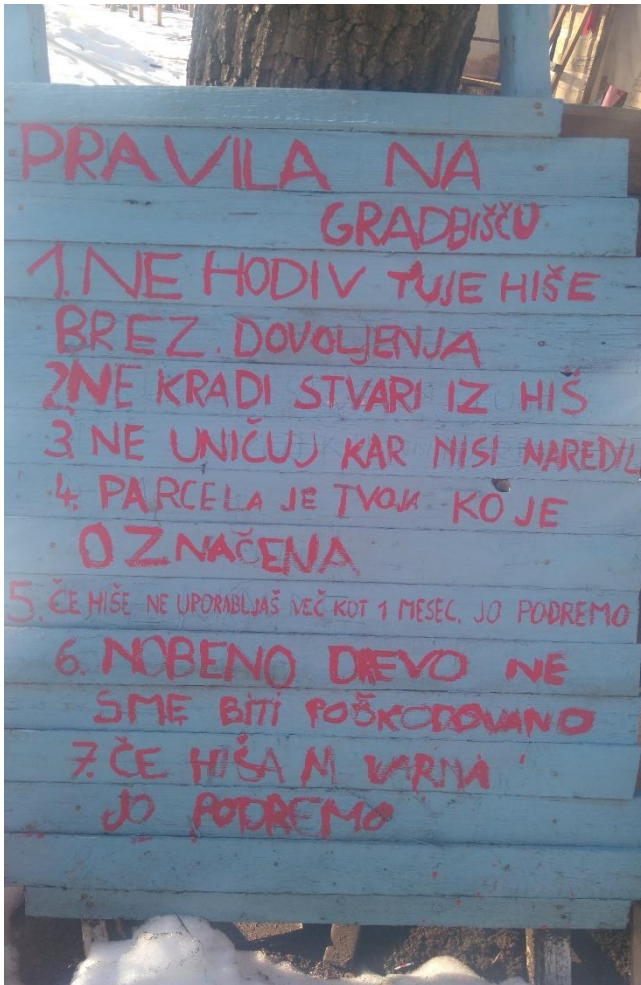 PRAVILA NA
GRADBIŠČU
1. NE HODI V TUJE HIŠE
BREZ DOVOLJENJA
2. NE KRADI STVARI IZ HIŠ
3. NE UNIČUJ KAR NISI NAREDIL
4. PARCELA JE TVOJA KO JE
OZNAČENA
5. ČE HIŠE NE UPORABLJAŠ VEČ KOT 1 MESEC, JO PODREMO
6. NOBENO DREVO NE
SME BITI POŠKODOVANO
7. ČE HIŠA NI VARNA
JO PODREMO